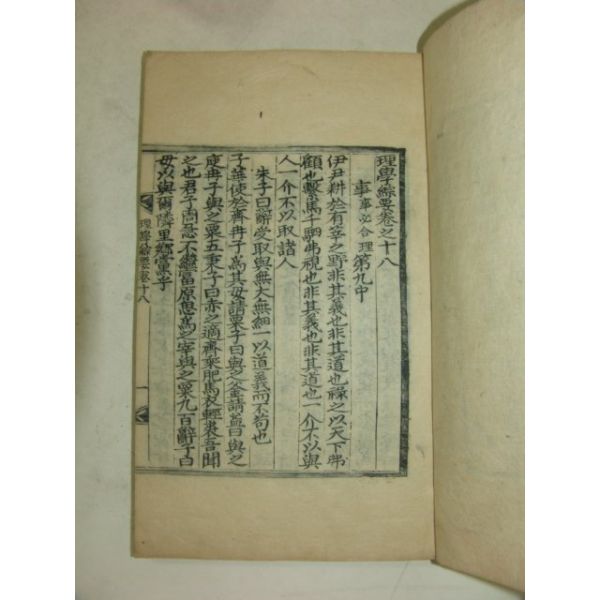 理學綜要卷之十八
事 事必合理 第九中
伊尹耕於有莘之野非其義也非其道也祿之以天下弗
顧也繫馬千駟弗視也非其義也非其道也一介不以與
人一介不以取諸人
朱子曰辭受取與無大無細一以道義而不苟也
子華使於齊冉子爲其母請粟子曰與之釜請益曰與之
庾冉子與之粟五秉子曰赤之適齊乘肥馬衣輕裘吾聞
之也君子周急不繼富原思爲之宰與之粟九百辭子曰
毋以與爾隣里鄕黨乎
理學綜要卷十八
一